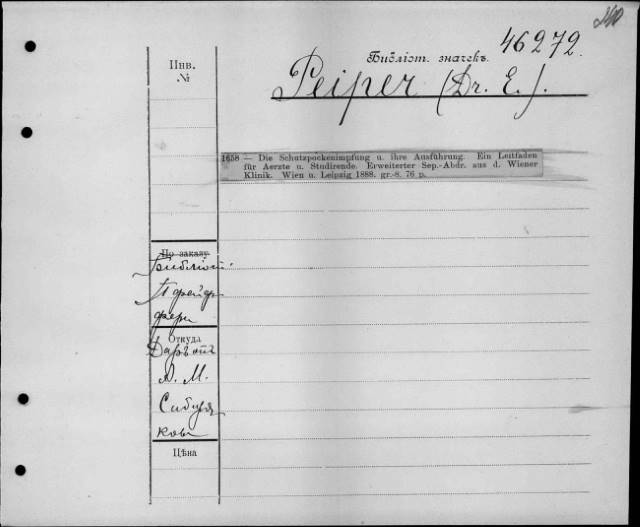 46272.
Библіот. значекъ.
Инв.
№
Peiper (Dr. E.).
1658 — Die Schutzpockenimpfung u. ihre Ausführung. Ein Leitfaden
für Aerzte u. Studirende. Erweiterter Sep.-Abdr. aus d. Wiener
Klinik. Wien u. Leipzig 1888. gr.-8. 76 p.
По заказу
Библіот.
Пфейф
фера
Откуда
Даръ отъ
А. М.
Сибиря
кова
Цѣна